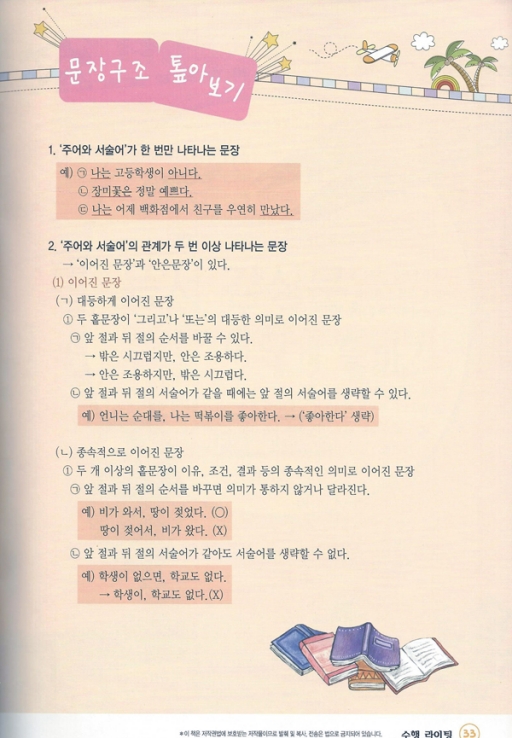 문장구조 톺아보기
1. '주어와 서술어'가 한 번만 나타나는 문장
예) ㉠ 나는 고등학생이 아니다.
㉡ 장미꽃은 정말 예쁘다.
㉢ 나는 어제 백화점에서 친구를 우연히 만났다.
2. '주어와 서술어'의 관계가 두 번 이상 나타나는 문장
→ '이어진 문장'과 '안은문장'이 있다.
(1) 이어진 문장
(ㄱ) 대등하게 이어진 문장
① 두 홑문장이 '그리고'나 '또는'의 대등한 의미로 이어진 문장
㉠ 앞 절과 뒤 절의 순서를 바꿀 수 있다.
→ 밖은 시끄럽지만, 안은 조용하다.
→ 안은 조용하지만, 밖은 시끄럽다.
㉡ 앞 절과 뒤 절의 서술어가 같을 때에는 앞 절의 서술어를 생략할 수 있다.
예) 언니는 순대를, 나는 떡볶이를 좋아한다. → ('좋아한다' 생략)
(ㄴ) 종속적으로 이어진 문장
① 두 개 이상의 홑문장이 이유, 조건, 결과 등의 종속적인 의미로 이어진 문장
㉠ 앞 절과 뒤 절의 순서를 바꾸면 의미가 통하지 않거나 달라진다.
예) 비가 와서, 땅이 젖었다. (○)
땅이 젖어서, 비가 왔다. (X)
㉡ 앞 절과 뒤 절의 서술어가 같아도 서술어를 생략할 수 없다.
예) 학생이 없으면, 학교도 없다.
→ 학생이, 학교도 없다.(X)
*이 책은 저작권법에 보호받는 저작물이므로 발췌 및 복사, 전송은 법으로 금지되어 있습니다.
수행 라이팅 33